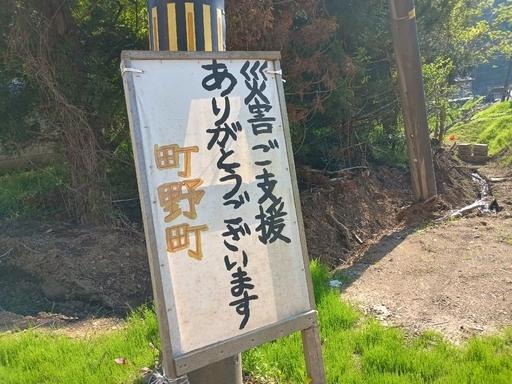 災害ご支援
ありがとうございます
町野町